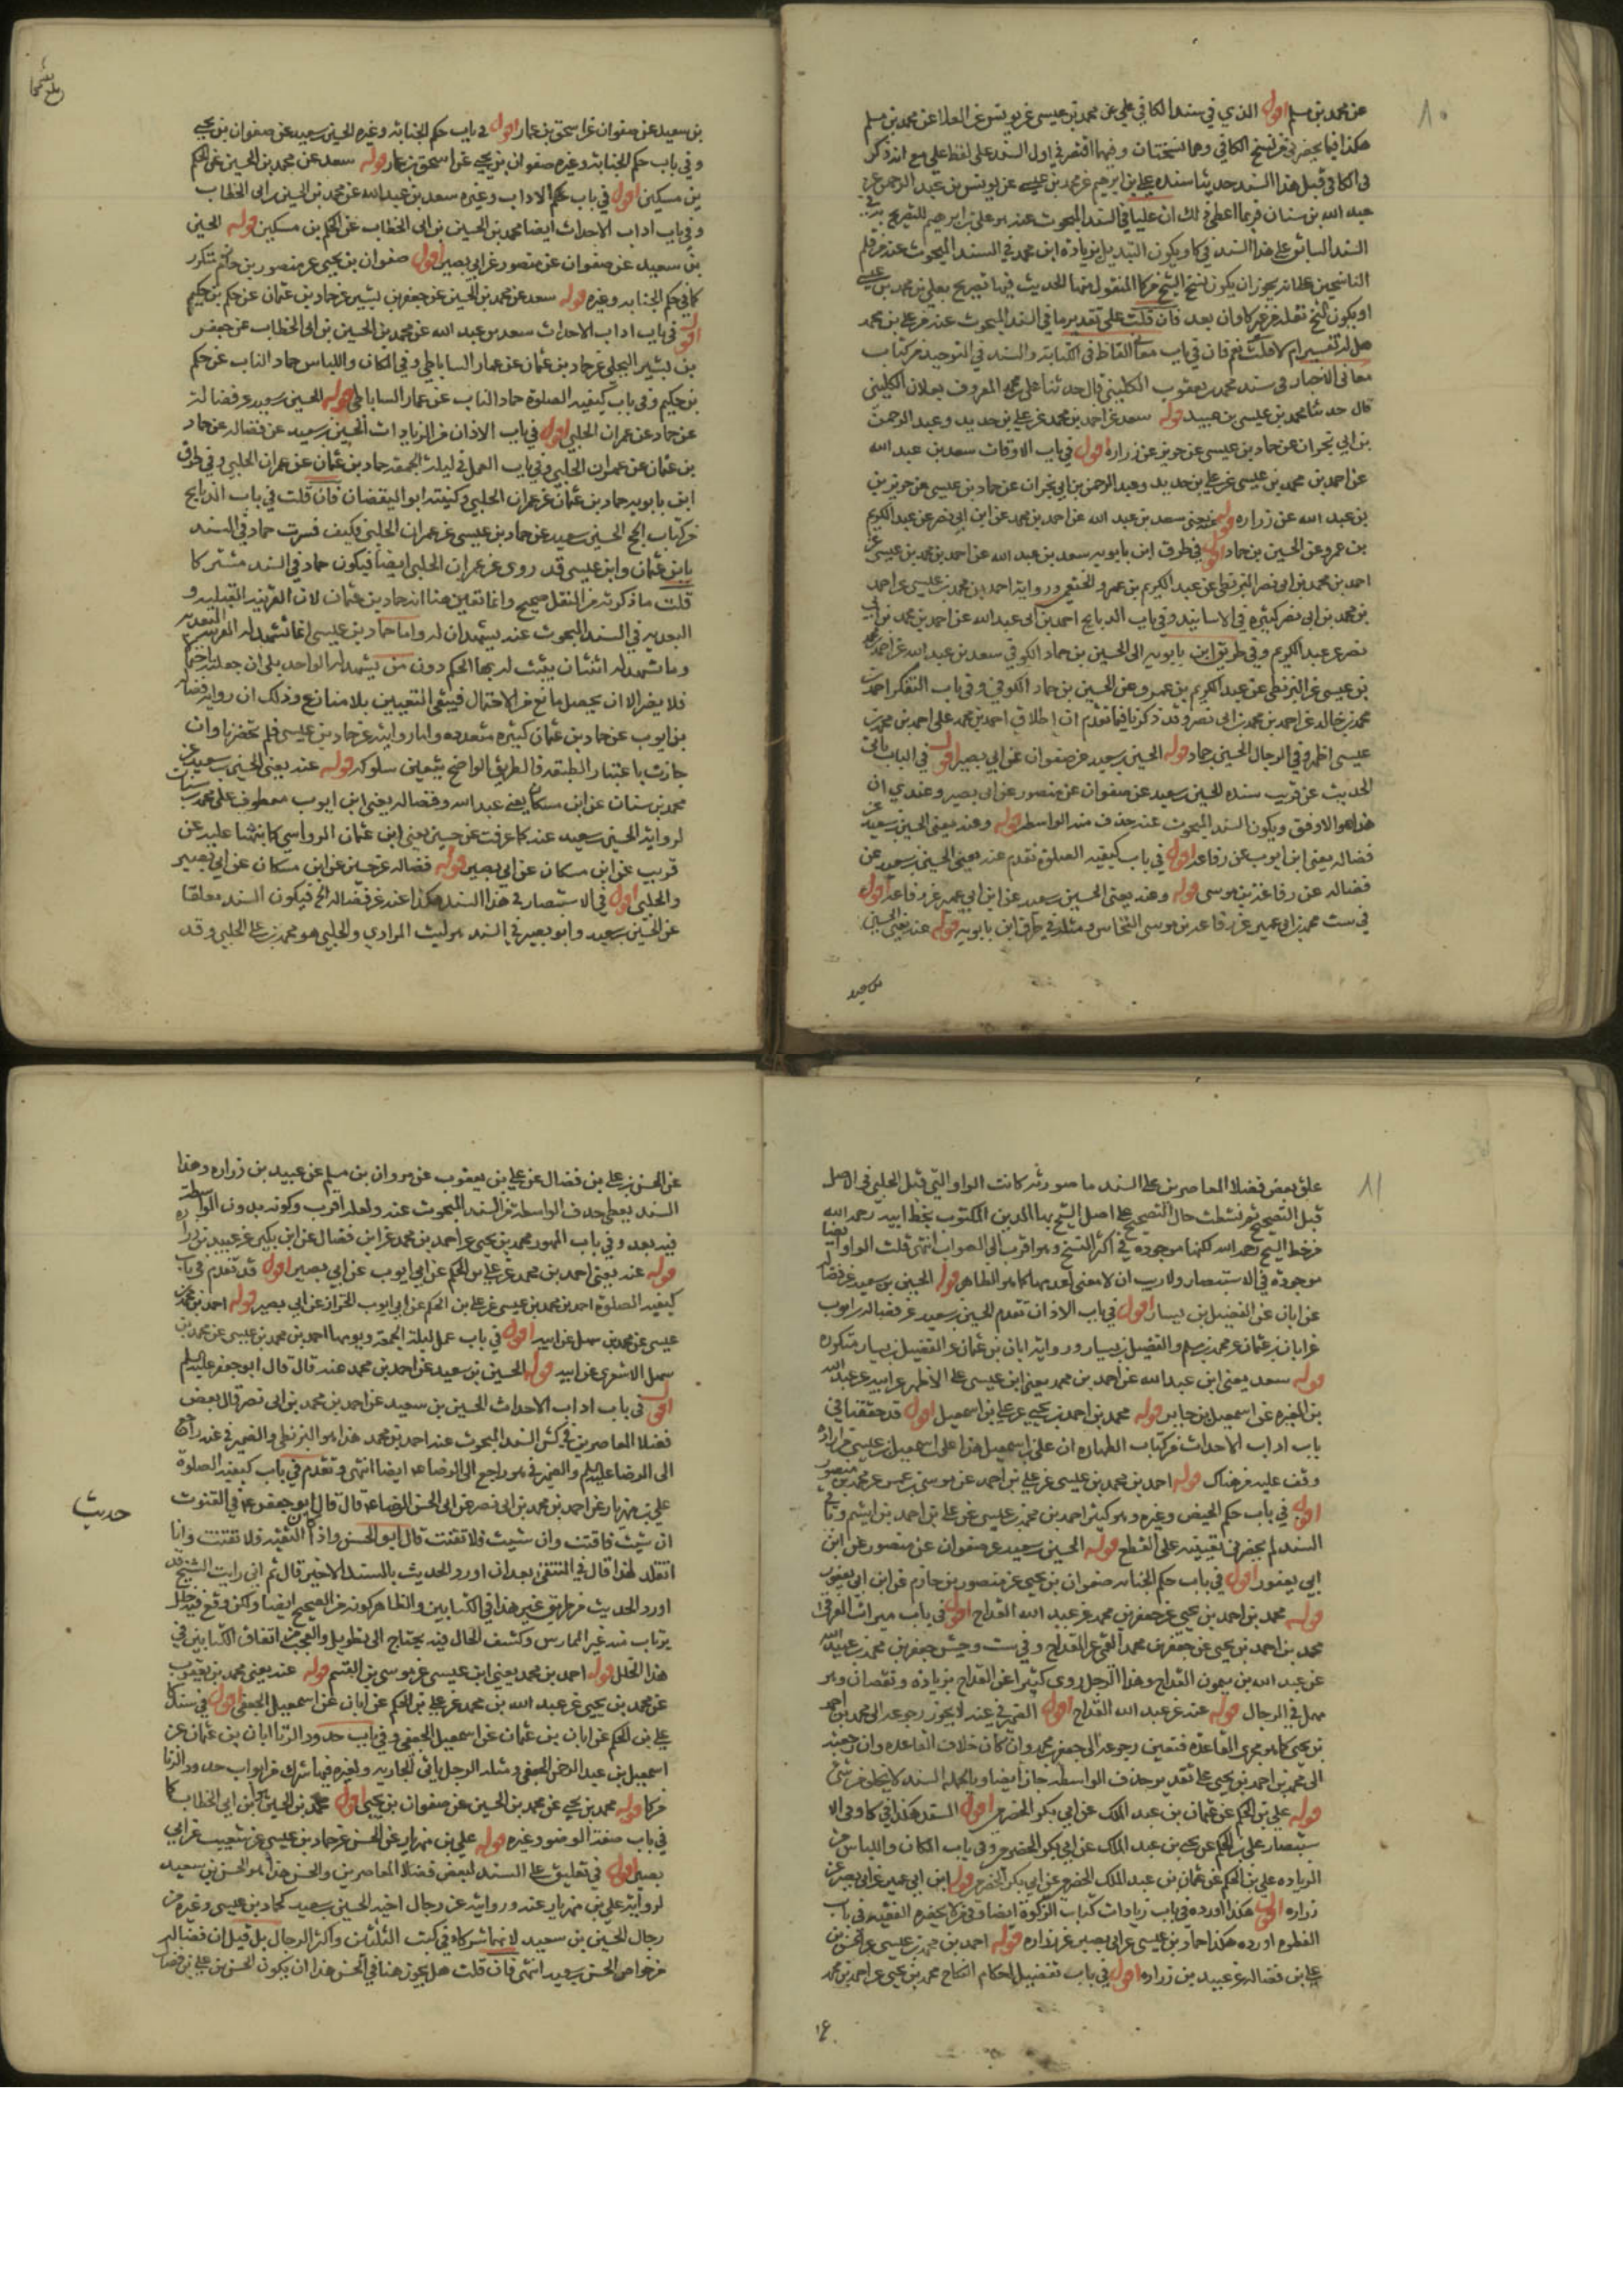 ١٠
عن محمد بن مسلم اقول الذي في سند الكافي علي عن محمد بن عيسى عن يونس عن العلا عن محمد بن مسلم
هكذا فيما يحضرني من نسخ الكافي وهما نسختان وفيهما اقتصر في اول السند على لفظ علي مع انه ذكر
في الكافي قبل هذا السند حديثا سنده علي بن ابرهيم عن محمد بن عيسى عن يونس بن عبد الرحمن عن
عبد الله بن سنان فربما اعطى ذلك ان عليا في السند المبحوث عنه هو علي بن ابرهيم للتصريح به في
السند السابق على هذا السند في كا ويكون التبديل بزيادة ابن محمد في السند المبحوث عنه من قلم
الناسخين على انه يجوز ان يكون نسخ الشيخ من كا المنقول منها الحديث فيها تصريح بعلي بن محمد بن عيسى
او يكون الشيخ نقله من غير كا وان بعد فان قلت على تقدير ما في السند المبحوث عنه من علي بن محمد
هل له تفسير ام لا قلت نعم فان في باب معاني الفاظ في الكتابة والسند في التوحيد من كتاب
معاني الاخبار في سند محمد بن يعقوب الكليني قال حدثنا علي بن محمد المعروف بعلان الكليني
قال حدثنا محمد بن عيسى بن عبيد قوله سعد عن احمد بن محمد عن علي بن حديد وعبد الرحمن
بن ابي نجران عن حماد بن عيسى عن حريز عن زراره اقول في باب الاوقات سعد بن عبد الله
عن احمد بن محمد بن عيسى عن علي بن حديد وعبد الرحمن بن ابي نجران عن حماد بن عيسى عن حريز بن
بن عبد الله عن زراره قوله سعد بن عبد الله عن احمد بن محمد عن ابن ابي نصر عن عبد الكريم
بن عمرو عن الحسين بن حماد اقول في طرق ابن بابويه سعد بن عبد الله عن احمد بن محمد بن عيسى عن
احمد بن محمد بن ابي نصر البزنطي عن عبد الكريم بن عمرو الخثعمي ورواية احمد بن محمد بن عيسى عن احمد
بن محمد بن ابي نصر كثيره في الاسانيد وفي باب الذبايح احمد بن ابي عبد الله عن احمد بن محمد بن ابي
نصر عن عبد الكريم وفي طريق ابن بابويه الى الحسين بن حماد الكوفي سعد بن عبد الله عن احمد بن محمد
بن عيسى عن البزنطي عن عبد الكريم بن عمرو عن الحسين بن حماد الكوفي وفي باب التفكر احمد بن
محمد بن خالد عن احمد بن محمد بن ابي نصر وقد ذكرنا فيما تقدم ان اطلاق احمد بن محمد على احمد بن محمد بن
عيسى اظهر وفي الرجال الحسين بن حماد قوله الحسين بن سعيد عن صفوان عن ابي بصير اقول في الباب ياتي
الحديث عن قريب سنده الحسين بن سعيد عن صفوان عن منصور عن ابي بصير وعندي ان
هذا هو الاوفق ويكون السند المبحوث عنه حذف منه الواسطه قوله وعنه يعني الحسين بن سعيد عن
فضاله يعني ابن ايوب عن رفاعه اقول في باب كيفيه الصلوة تقدم عنه يعني الحسين بن سعيد عن
فضاله عن رفاعة بن موسى قوله وعنه يعني الحسين بن سعيد عن ابن ابي عمير عن رفاعه اقول
في ست محمد بن ابي عمير عن رفاعه بن موسى النخاس ومثله في طرق ابن بابويه قوله عنه يعني الحسين
بن سعيد
بن سعيد عن صفوان عن اسحق بن عمار اقول في باب حكم الجنابة وغيره الحسين بن سعيد عن صفوان بن يحيى
وفي باب حكم الجنابة وغيره صفوان بن يحيى عن اسحق بن عمار قوله سعد عن محمد بن الحسين عن الحكم
بن مسكين اقول في باب حكم الاداب وغيره سعد بن عبد الله عن محمد بن الحسين بن ابي الخطاب
وفي باب اداب الاحداث ايضا محمد بن الحسين بن ابي الخطاب عن الحكم بن مسكين قوله الحسين
بن سعيد عن صفوان عن منصور عن ابي بصير اقول صفوان بن يحيى عن منصور بن حازم متكرر
كما في حكم الجنابه وغيره قوله سعد عن محمد بن الحسين عن جعفر بن بشير عن حماد بن عثمان عن حكم بن حكيم
اقول في باب اداب الاحداث سعد بن عبد الله عن محمد بن الحسين بن ابي الخطاب عن جعفر
بن بشير البجلي عن حماد بن عثمان عن عمار الساباطي وفي المكان واللباس حماد الناب عن حكم
بن حكيم وفي باب كيفيه الصلوة حماد الناب عن عمار الساباطي قوله الحسين بن سعيد عن فضالة
عن حماد عن عمران الحلبي اقول في باب الاذان من الزيادات الحسين بن سعيد عن فضاله عن حماد
بن عثمان عن عمران الحلبي وفي باب العمل في ليلة الجمعه حماد بن عثمان عن عمران الحلبي وفي طرق
ابن بابويه حماد بن عثمان عن عمران الحلبي وكنيته ابو اليقضان فان قلت في باب الذبايح
من كتاب الحج الحسين بن سعيد عن حماد بن عيسى عن عمران الحلبي وكيف فسرت حماد في السند
بابن عثمان وابن عيسى قد روى عن عمران الحلبي ايضا فيكون حماد في السند مشتركا
قلت ما ذكرته من النقل صحيح وانما تعين هنا انه حماد بن عثمان لان القرينه القبليه و
البعديه في السند المبحوث عنه يشهدان له واما حماد بن عيسى انما تشهد له القرينه البعديه
وما تشهد له اثنتان يثبت له بها الحكم دون من يشهد له الواحد
فلا يضر الا ان يحصل مانع من الاحتمال فيبقى التعيين بلا منازع وذلك ان رواية فضاله
بن ايوب عن حماد بن عثمان كثيره متعدده واما روايته عن حماد بن عيسى فلم تحضرنا وان
جازت باعتبار الطبقه فالطريق الواضح يتعين سلوكه قوله عنه يعني الحسين بن سعيد عن
محمد بن سنان عن ابن مسكان يعني عبد الله وفضاله يعني ابن ايوب معطوف على محمد بن سنان
لرواية الحسين بن سعيد عنه كما عرفت عن حسين يعني ابن عثمان الرواسي كما نبهنا عليه عن
قريب عن ابن مسكان عن ابي بصير قوله فضاله عن حسين عن ابن مسكان عن ابي بصير
والحلبي اقول في الاستبصار في هذا السند هكذا عنه عن فضاله الخ فيكون السند معلقا
عن الحسين بن سعيد وابو بصير في السند هو ليث المرادي والحلبي هو محمد بن علي الحلبي وقد
١١
علق بعض فضلاء المعاصرين على السند ما صورته كانت الواو التي قبل الحلبي في الاصل
قبل التصحيح ثم نشطت حال التصحيح على اصل الشيخ بهاء الدين المكتوب بخط ابيه رحمه الله
من خط الشيخ رحمه الله لكنها موجوده في اكثر النسخ وهو اقرب الى الصواب انتهى قلت الواو ايضا
موجودة في الاستبصار ولا ريب ان لا معنى لعدمها كما هو الظاهر قوله الحسين بن سعيد عن فضاله
عن ابان عن الفضيل بن يسار اقول في باب الاذان تقدم الحسين بن سعيد عن فضاله بن ايوب
عن ابان بن عثمان عن محمد بن مسلم والفضيل بن يسار ورواية ابان بن عثمان عن الفضيل بن يسار متكرره
قوله سعد يعني ابن عبد الله عن احمد بن محمد يعني ابن عيسى على الاظهر عن ابيه عن عبد الله
بن المغيره عن اسمعيل بن جابر قوله محمد بن احمد بن يحيى عن علي بن اسمعيل اقول قد حققنا في
باب اداب الاحداث من كتاب الطهاره ان علي بن اسمعيل هذا علي بن اسمعيل بن عيسى من اراده
وقف عليه من هناك قوله احمد بن محمد بن عيسى عن علي بن احمد عن موسى بن عمر عن محمد بن منصور
اقول في باب حكم الحيض وغيره وهو كثير احمد بن محمد بن عيسى عن علي بن احمد بن اشيم
السند لم يحضرني تعيينه على القطع قوله الحسين بن سعيد عن صفوان عن منصور عن ابن
ابي يعفور اقول في باب حكم الجنابه صفوان بن يحيى عن منصور بن حازم عن ابن ابي يعفور
قوله محمد بن احمد بن يحيى عن جعفر بن محمد عن عبد الله القداح اقول في باب ميراث الغرقى
محمد بن احمد بن يحيى عن جعفر بن محمد القمي عن القداح وفي ست وجش جعفر بن محمد بن عبيد الله
عن عبد الله بن ميمون القداح وهذا الرجل روى كثيرا عن القداح بزيادة ونقصان وهو
مهمل في الرجال قوله عنه عن عبد الله القداح اقول الضمير في عنه لا يجوز رجوعه الى محمد بن احمد
بن يحيى كما هو مجرى القاعده فتعين رجوعه الى جعفر بن محمد وان كان خلاف القاعده وان رجعته
الى محمد بن احمد بن يحيى على تقدير حذف الواسطه جاز ايضا وبالجمله السند لا يخلو من شئ
قوله علي بن الحكم عن عثمان بن عبد الملك عن ابي بكر الحضرمي اقول السند هكذا في كا وفي الا
ستبصار علي بن الحكم عن يحيى بن عبد الملك عن ابي بكر الحضرمي وفي باب المكان واللباس من
الزياده علي بن الحكم عن عثمان بن عبد الملك الحضرمي عن ابي بكر الحضرمي قوله ابن ابي عمير عن ابي بصير عن
زراره اقول هكذا اورده في باب زيادات كتاب الزكوة ايضا وفي من لا يحضره الفقيه في باب
الفطره اورده هكذا حماد بن عيسى عن ابي بصير عن زراره قوله احمد بن محمد بن عيسى عن الحسن بن
علي بن فضاله عن عبيد بن زراره اقول في باب تفصيل احكام النكاح محمد بن يحيى عن احمد بن محمد
عن الحسن بن علي بن فضال عن علي بن يعقوب عن مروان بن مسلم عن عبيد بن زراره وهذا
السند يعطي حذف الواسطة من السند المبحوث عنه ولعله اقرب وكونه بدون الواسطه
فيه بعد وفي باب المهور محمد بن يحيى عن احمد بن محمد عن ابن فضال عن ابن بكير عن عبيد بن زراره
قوله عنه يعني احمد بن محمد عن علي بن الحكم عن ابي ايوب عن ابي بصير اقول قد تقدم في باب
كيفيه الصلوة احمد بن محمد بن عيسى عن علي بن الحكم عن ابي ايوب الخزاز عن ابي بصير قوله احمد بن محمد بن
عيسى عن محمد بن سهل عن ابيه اقول في باب عمل ليلة الجمعه ويومها احمد بن محمد بن عيسى عن محمد بن
سهل الاشعري عن ابيه قوله الحسين بن سعيد عن احمد بن محمد عنه قال قال ابو جعفر عليه السلم
اقول في باب اداب الاحداث الحسين بن سعيد عن احمد بن محمد بن ابي نصر قال بعض
فضلاء المعاصرين في كش السند المبحوث عنه احمد بن محمد هذا هو البزنطي والضمير في عنه راجع
الى الرضا عليه السلم والضمير في هو راجع الى الرضا ع ايضا انتهى وتقدم في باب كيفيه الصلوة
علي بن مهزيار عن احمد بن محمد بن ابي نصر عن ابي الحسن الرضا ع قال قال ابو جعفر ع في القنوت
ان شئت فاقنت وان شئت فلا تقنت قال ابو الحسن واذا كان التقيه فلا تقنت وانا
اتقلد هذا قال في المنتقى بعد ان اورد الحديث بالسند الاخير قال ثم اني رايت الشيخ قد
اورد الحديث من طريق غير هذا في الكتابين والظاهر كونه من الصحيح ايضا ولكن وقع فيه خلل
يرتاب منه غير الممارس وكشف الحال فيه يحتاج الى تطويل والعجب من اتفاق الكتابين في
هذا الخلل قوله احمد بن محمد يعني ابن عيسى عن موسى بن القسم قوله عنه يعني محمد بن يعقوب
عن محمد بن يحيى عن عبد الله بن محمد عن علي بن الحكم عن ابان عن اسمعيل الجعفي اقول في سند كا
علي بن الحكم عن ابان بن عثمان عن اسمعيل الجعفي وفي باب حدود الزنا ابان بن عثمان عن
اسمعيل بن عبد الرحمن الجعفي ومثله الرجل ياتي الجاريه ولغيره فيها شرك من ابواب حدود الزنا
من كا قوله محمد بن يحيى عن محمد بن الحسين عن صفوان بن يحيى اقول محمد بن الحسين هو ابن ابي الخطاب كما
في باب صفة الوضوء وغيره قوله علي بن مهزيار عن الحسن عن حماد بن عيسى عن شعيب عن ابي
بصير اقول في تعليق على السند لبعض فضلاء المعاصرين والحسن هذا هو الحسن بن سعيد
لرواية علي بن مهزيار عنه وروايته عن رجال اخيه الحسين بن سعيد كحماد بن عيسى وغيره من
رجال الحسين بن سعيد لانهما شركاء في كتب الثلثين واكثر الرجال بل قيل ان فضاله
من خواص الحسن بن سعيد انتهى فان قلت هل يجوز هنا في الحسن هذا ان يكون الحسن بن علي بن فضال
حديث